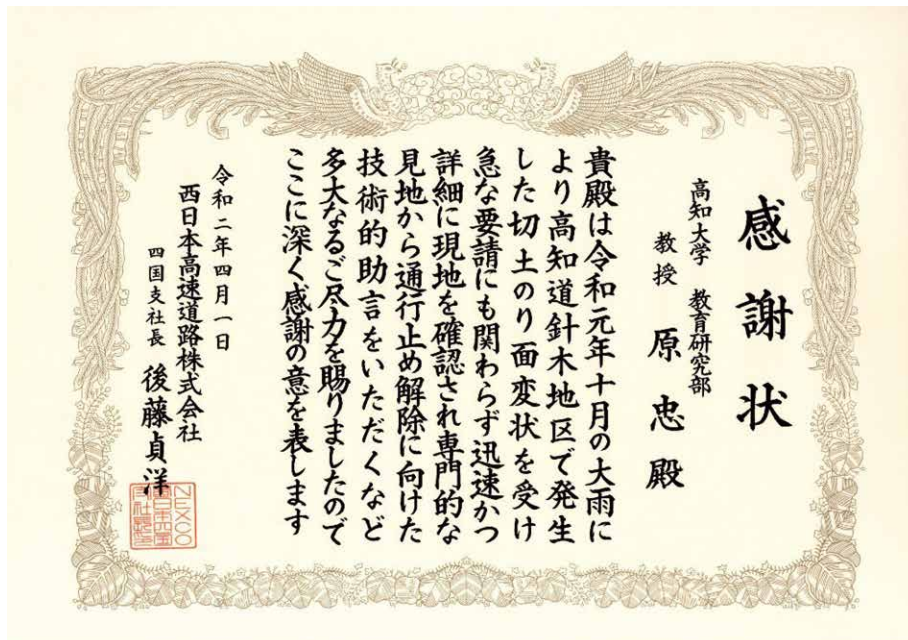 感謝状
高知大学 教育研究部
教授 原忠殿
貴殿は令和元年十月の大雨に
より高知道針木地区で発生
した切土のり面変状を受け
急な要請にも関わらず迅速かつ
詳細に現地を確認され専門的な
見地から通行止め解除に向けた
技術的助言をいただくなど
多大なるご尽力を賜りましたので
ここに深く感謝の意を表します
令和二年四月一日
西日本高速道路株式会社
四国支社長 後藤貞洋
NEXCO